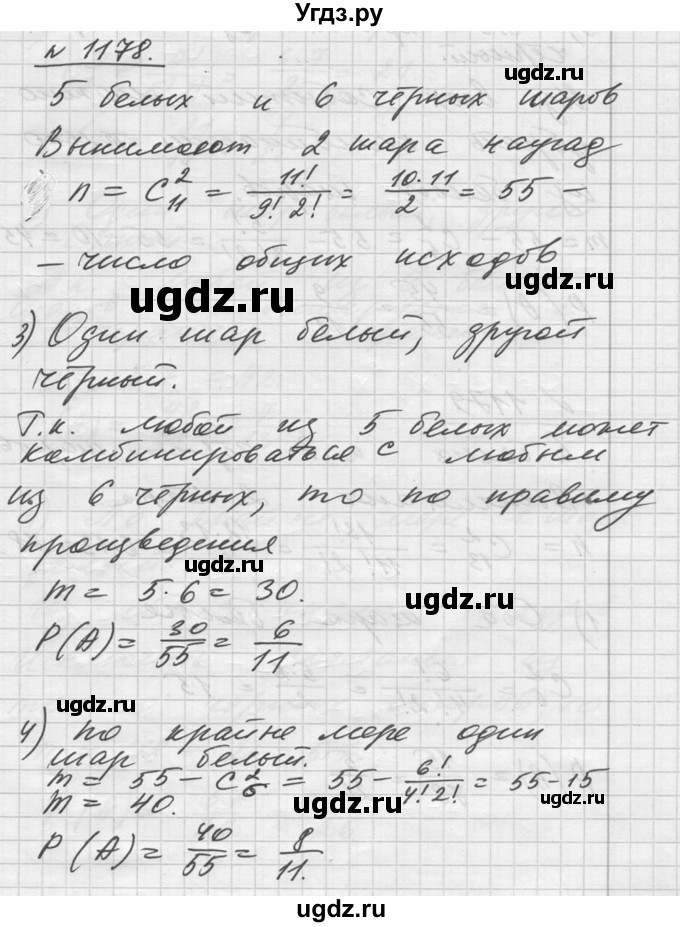 Угдз.ру
№ 1178.
ugdz.ru
5 белых и 6 чёрных шаров
Вынимают 2 шара наугад
n = C₁₁² = 11!/9! 2! = 10·11/2 = 55 –
– число общих исходов
ugdz.ru ugdz.ru
3) Один шар белый, другой
чёрный.
Т.к. любой из 5 белых может
комбинироваться с любым
из 6 чёрных, то по правилу
произведения
ugdz.ru
m = 5·6 = 30.
ugdz.ru
P(A) = 30/55 = 6/11
ugdz.ru
4) по крайне мере один
шар белый.
m = 55 – C₆² = 55 – 6!/4! 2! = 55 – 15
m = 40.
ugdz.ru ugdz.ru
P(A) = 40/55 = 8/11.
ugdz.ru